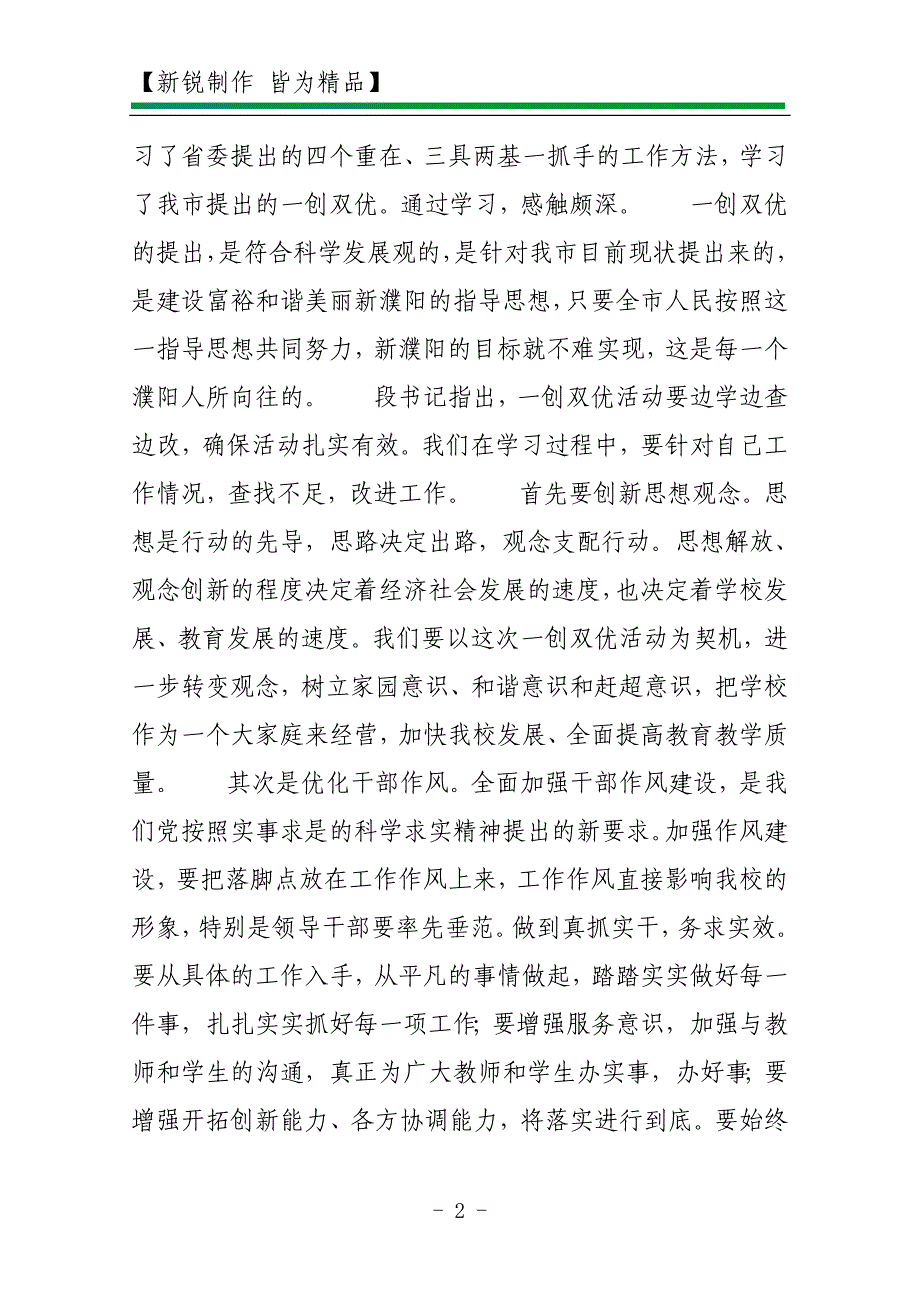 【新锐制作 皆为精品】
习了省委提出的四个重在、三具两基一抓手的工作方法，学习
了我市提出的一创双优。通过学习，感触颇深。　　一创双优
的提出，是符合科学发展观的，是针对我市目前现状提出来的，
是建设富裕和谐美丽新濮阳的指导思想，只要全市人民按照这
一指导思想共同努力，新濮阳的目标就不难实现，这是每一个
濮阳人所向往的。　　段书记指出，一创双优活动要边学边查
边改，确保活动扎实有效。我们在学习过程中，要针对自己工
作情况，查找不足，改进工作。　　首先要创新思想观念。思
想是行动的先导，思路决定出路，观念支配行动。思想解放、
观念创新的程度决定着经济社会发展的速度，也决定着学校发
展、教育发展的速度。我们要以这次一创双优活动为契机，进
一步转变观念，树立家园意识、和谐意识和赶超意识，把学校
作为一个大家庭来经营，加快我校发展、全面提高教育教学质
量。　　其次是优化干部作风。全面加强干部作风建设，是我
们党按照实事求是的科学求实精神提出的新要求。加强作风建
设，要把落脚点放在工作作风上来，工作作风直接影响我校的
形象，特别是领导干部要率先垂范。做到真抓实干，务求实效。
要从具体的工作入手，从平凡的事情做起，踏踏实实做好每一
件事，扎扎实实抓好每一项工作；要增强服务意识，加强与教
师和学生的沟通，真正为广大教师和学生办实事，办好事；要
增强开拓创新能力、各方协调能力，将落实进行到底。要始终
- 2 -